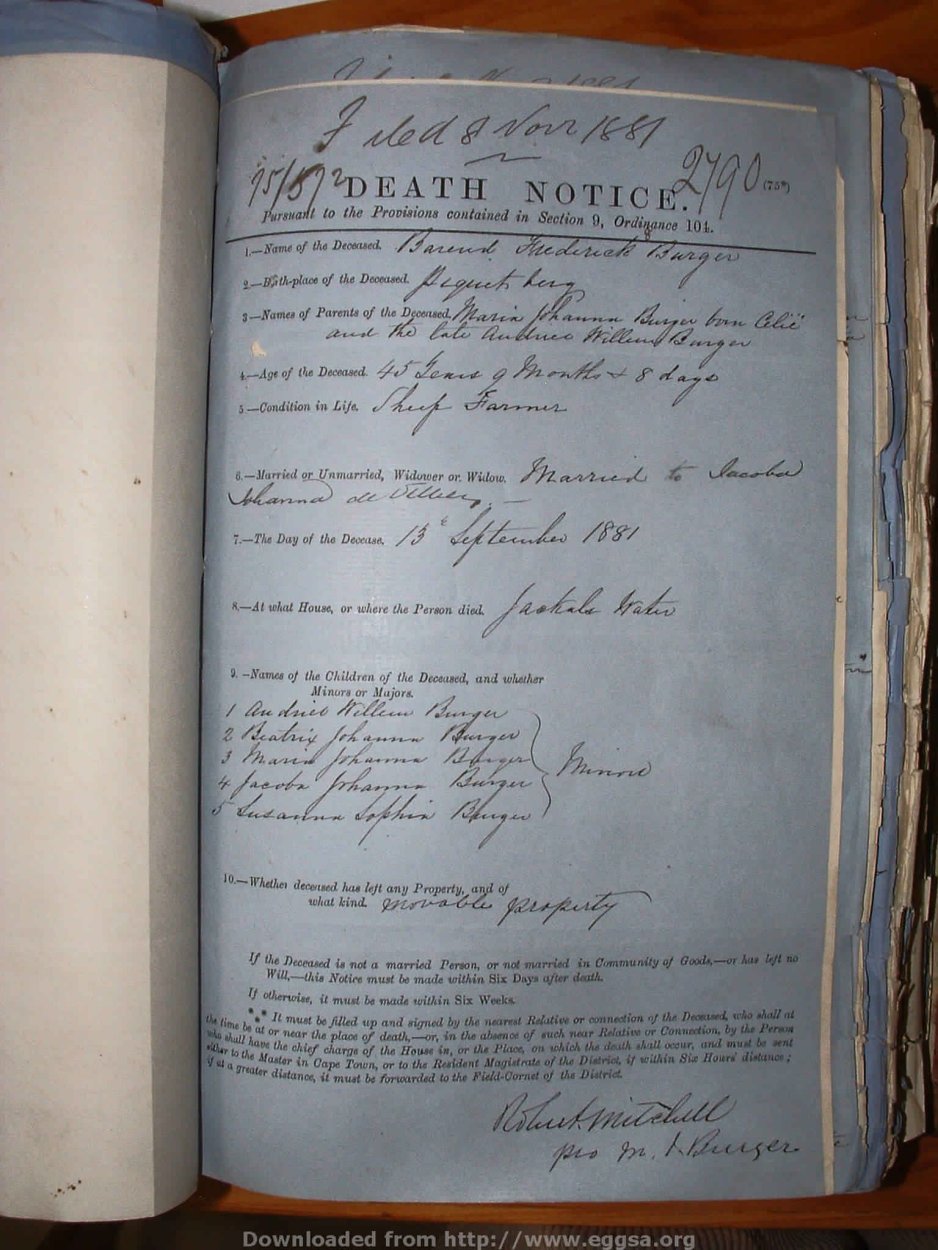 Filed 8 Novr 1881
2790
DEATH NOTICE.
Pursuant to the Provisions contained in Section 9, Ordinance 104.
1.—Name of the Deceased. Barend Frederick Burger
2.—Birth-place of the Deceased. Piquet berg
3—Names of Parents of the Deceased. Maria Johanna Burger born
and the late Andries Willem Burger
4.—Age of the Deceased. 45 Years 9 Months & 8 days
5—Condition in Life. Sheep Farmer
6.—Married or Unmarried, Widower or Widow. Married to Jacoba
Johanna de
7.—The Day of the Decease. 13 September 1881
8.—At what House, or where the Person died. Jackals Water
9.—Names of the Children of the Deceased, and whether
Minors or Majors.
1 Andries Willem Burger
2 Beatrix Johanna Burger
3 Maria Johanna Burger
Minors
4 Jacoba Johanna Burger
5 Susanna Sophia Burger
10.—Whether deceased has left any Property, and of
what kind. movable property
If the Deceased is not a married Person, or not married in Community of Goods,—or has left no
Will,—this Notice must be made within Six Days after death.
If otherwise, it must be made within Six Weeks.
*** It must be filled up and signed by the nearest Relative or connection of the Deceased, who shall at
the time be at or near the place of death,—or, in the absence of such near Relative or Connection, by the Person
who shall have the chief charge of the House in, or the Place, on which the death shall occur, and must be sent
either to the Master in Cape Town, or to the Resident Magistrate of the District, if within Six Hours' distance;
if at a greater distance, it must be forwarded to the Field-Cornet of the District.
Robert Mitchell
pro M. J. Burger
Downloaded from http://www.eggsa.org